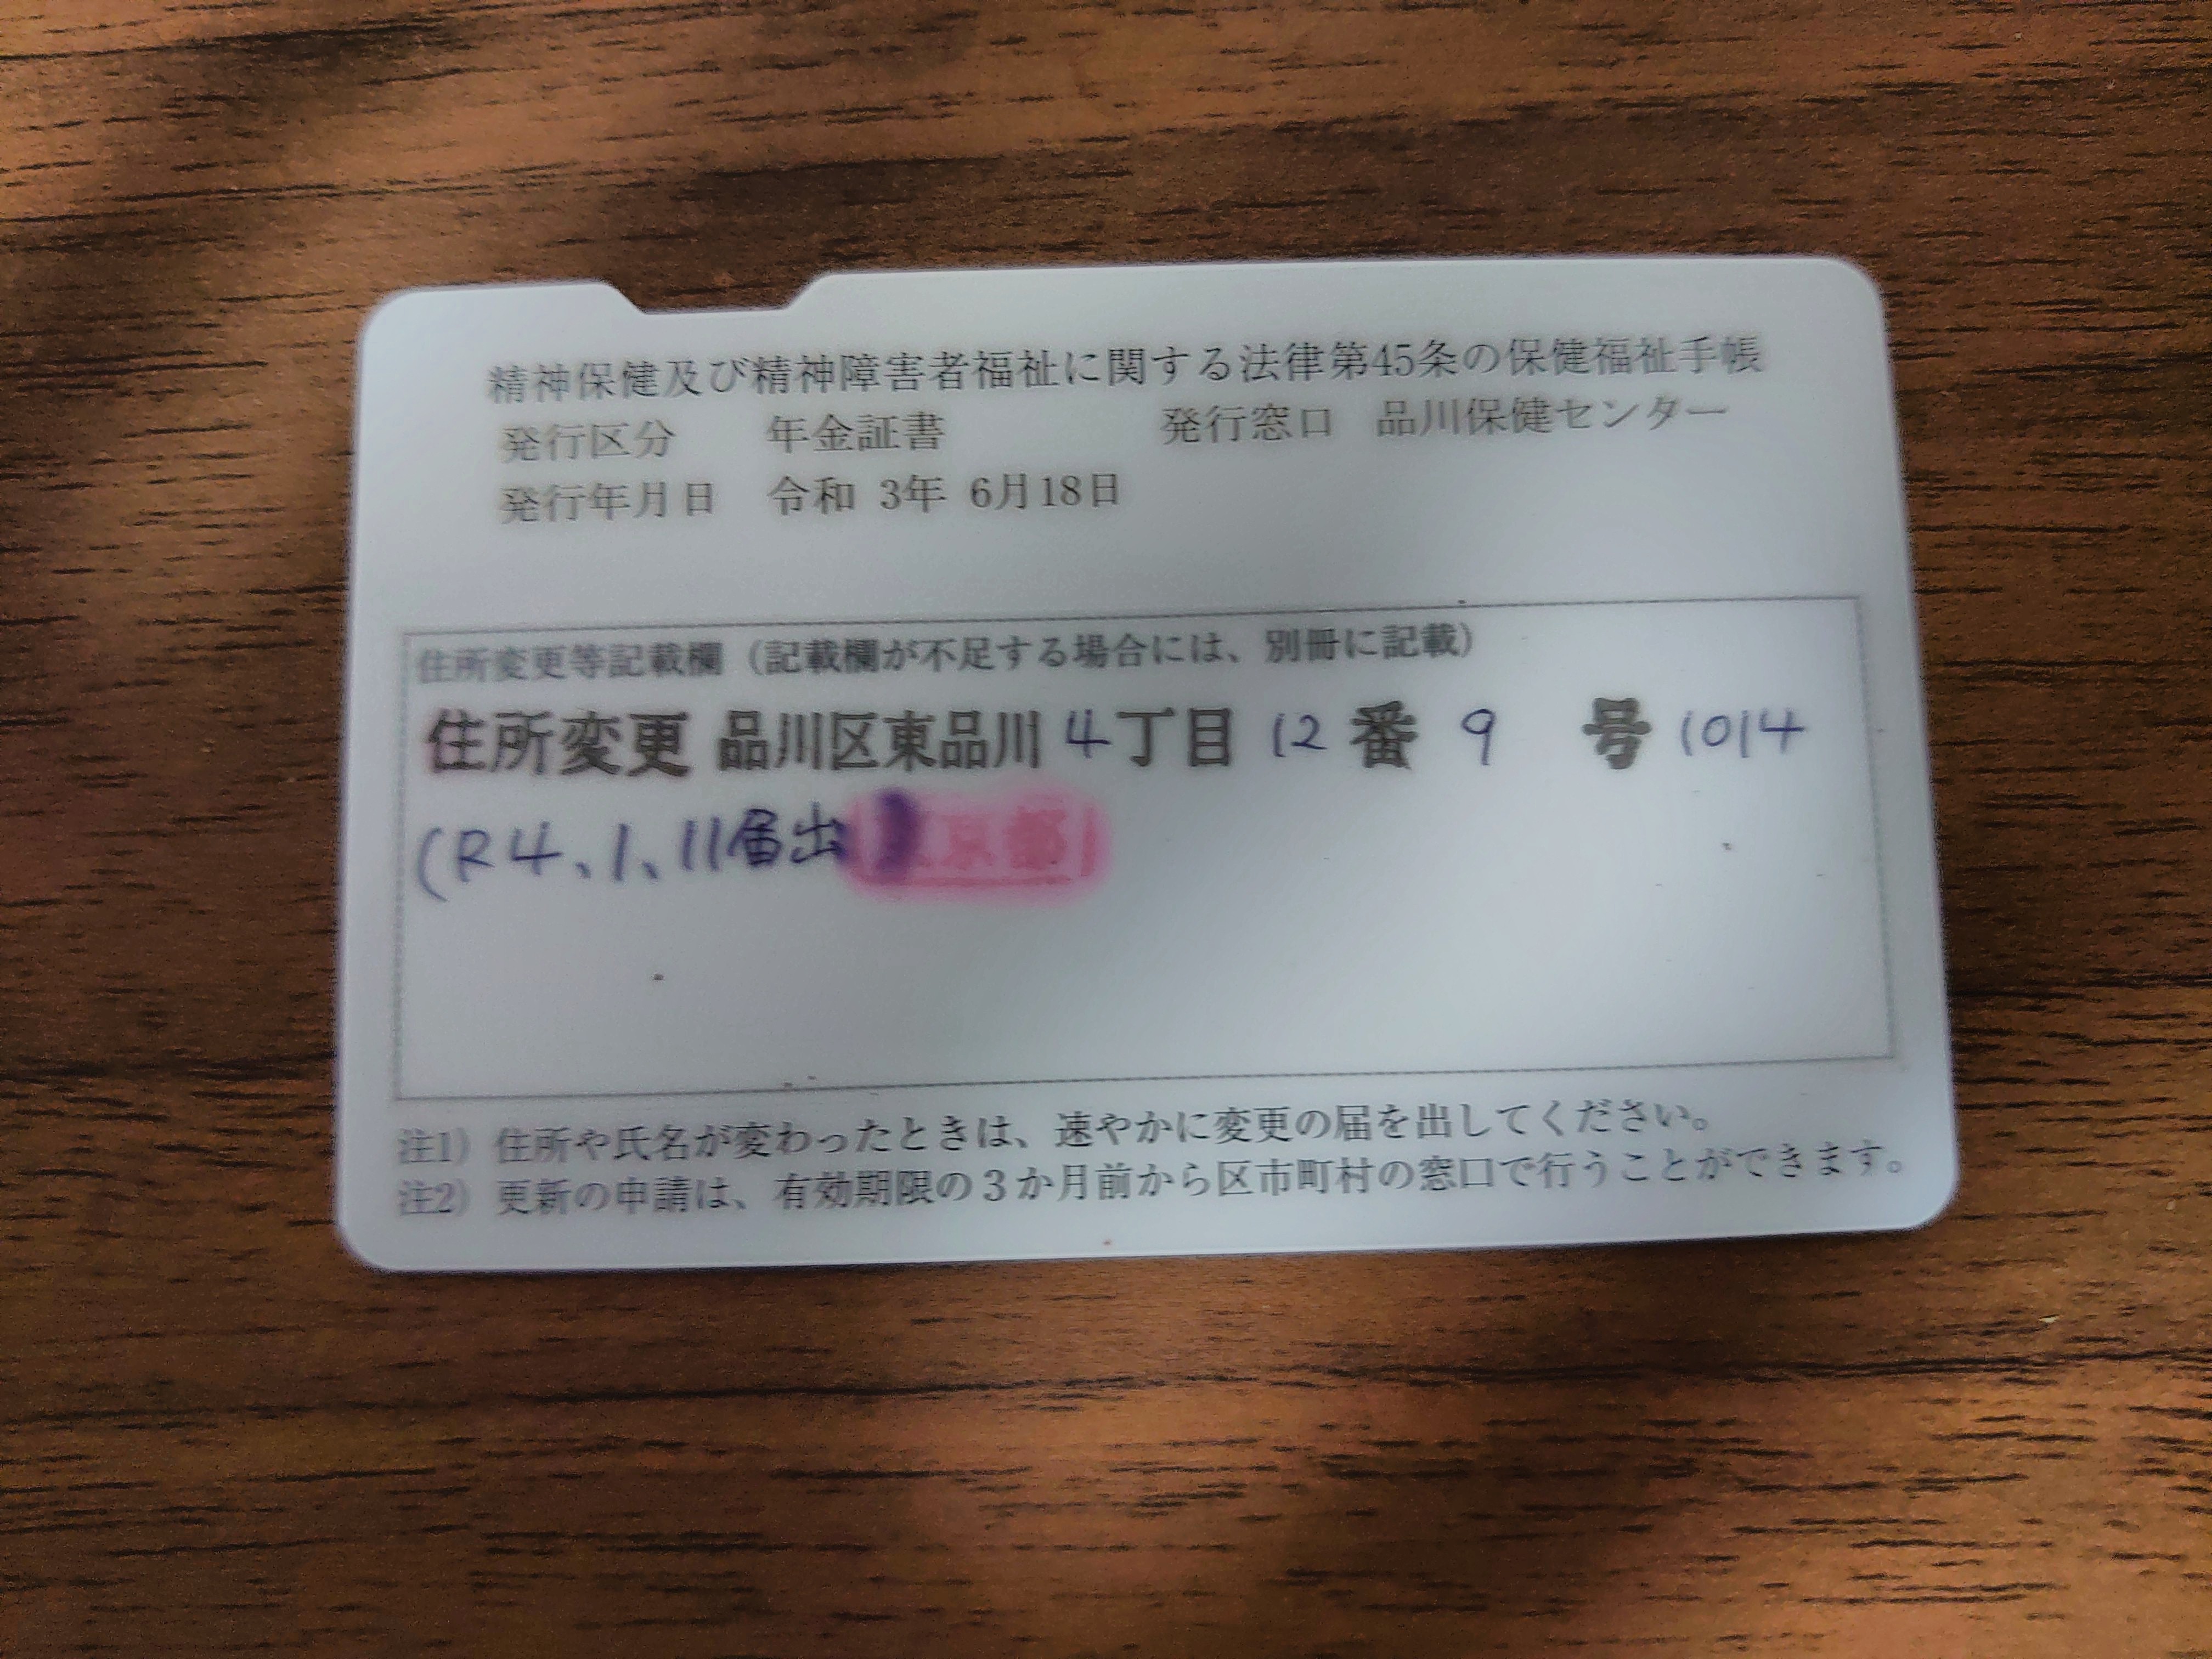 精神保健及び精神障害者福祉に関する法律第45条の保健福祉手帳
発行区分 年金証書 発行窓口 品川保健センター
発行年月日 令和 3年 6月18日
住所変更等記載欄（記載欄が不足する場合には、別冊に記載）
住所変更 品川区東品川 4丁目 12 番 9 号 1014
(R4、1、11届出) 東京都
注1）住所や氏名が変わったときは、速やかに変更の届を出してください。
注2）更新の申請は、有効期限の３か月前から区市町村の窓口で行うことができます。